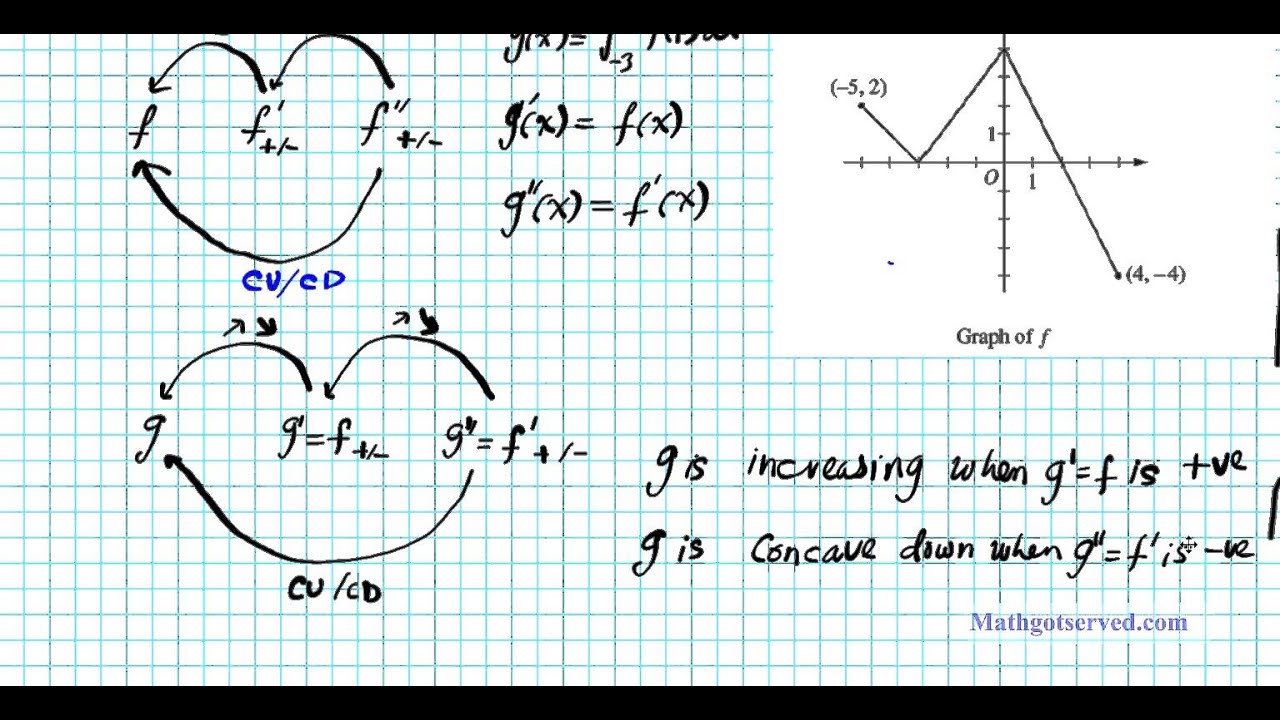 g(x) = ∫₋₃
f f'+/- f''+/-
g'(x) = f(x)
g''(x) = f'(x)
CU/CD
(−5, 2)
1
O 1
(4, −4)
Graph of f
g g'=f+/- g''=f'+/-
CU/CD
g is increasing when g'=f is +ve
g is concave down when g''=f' is -ve
Mathgotserved.com